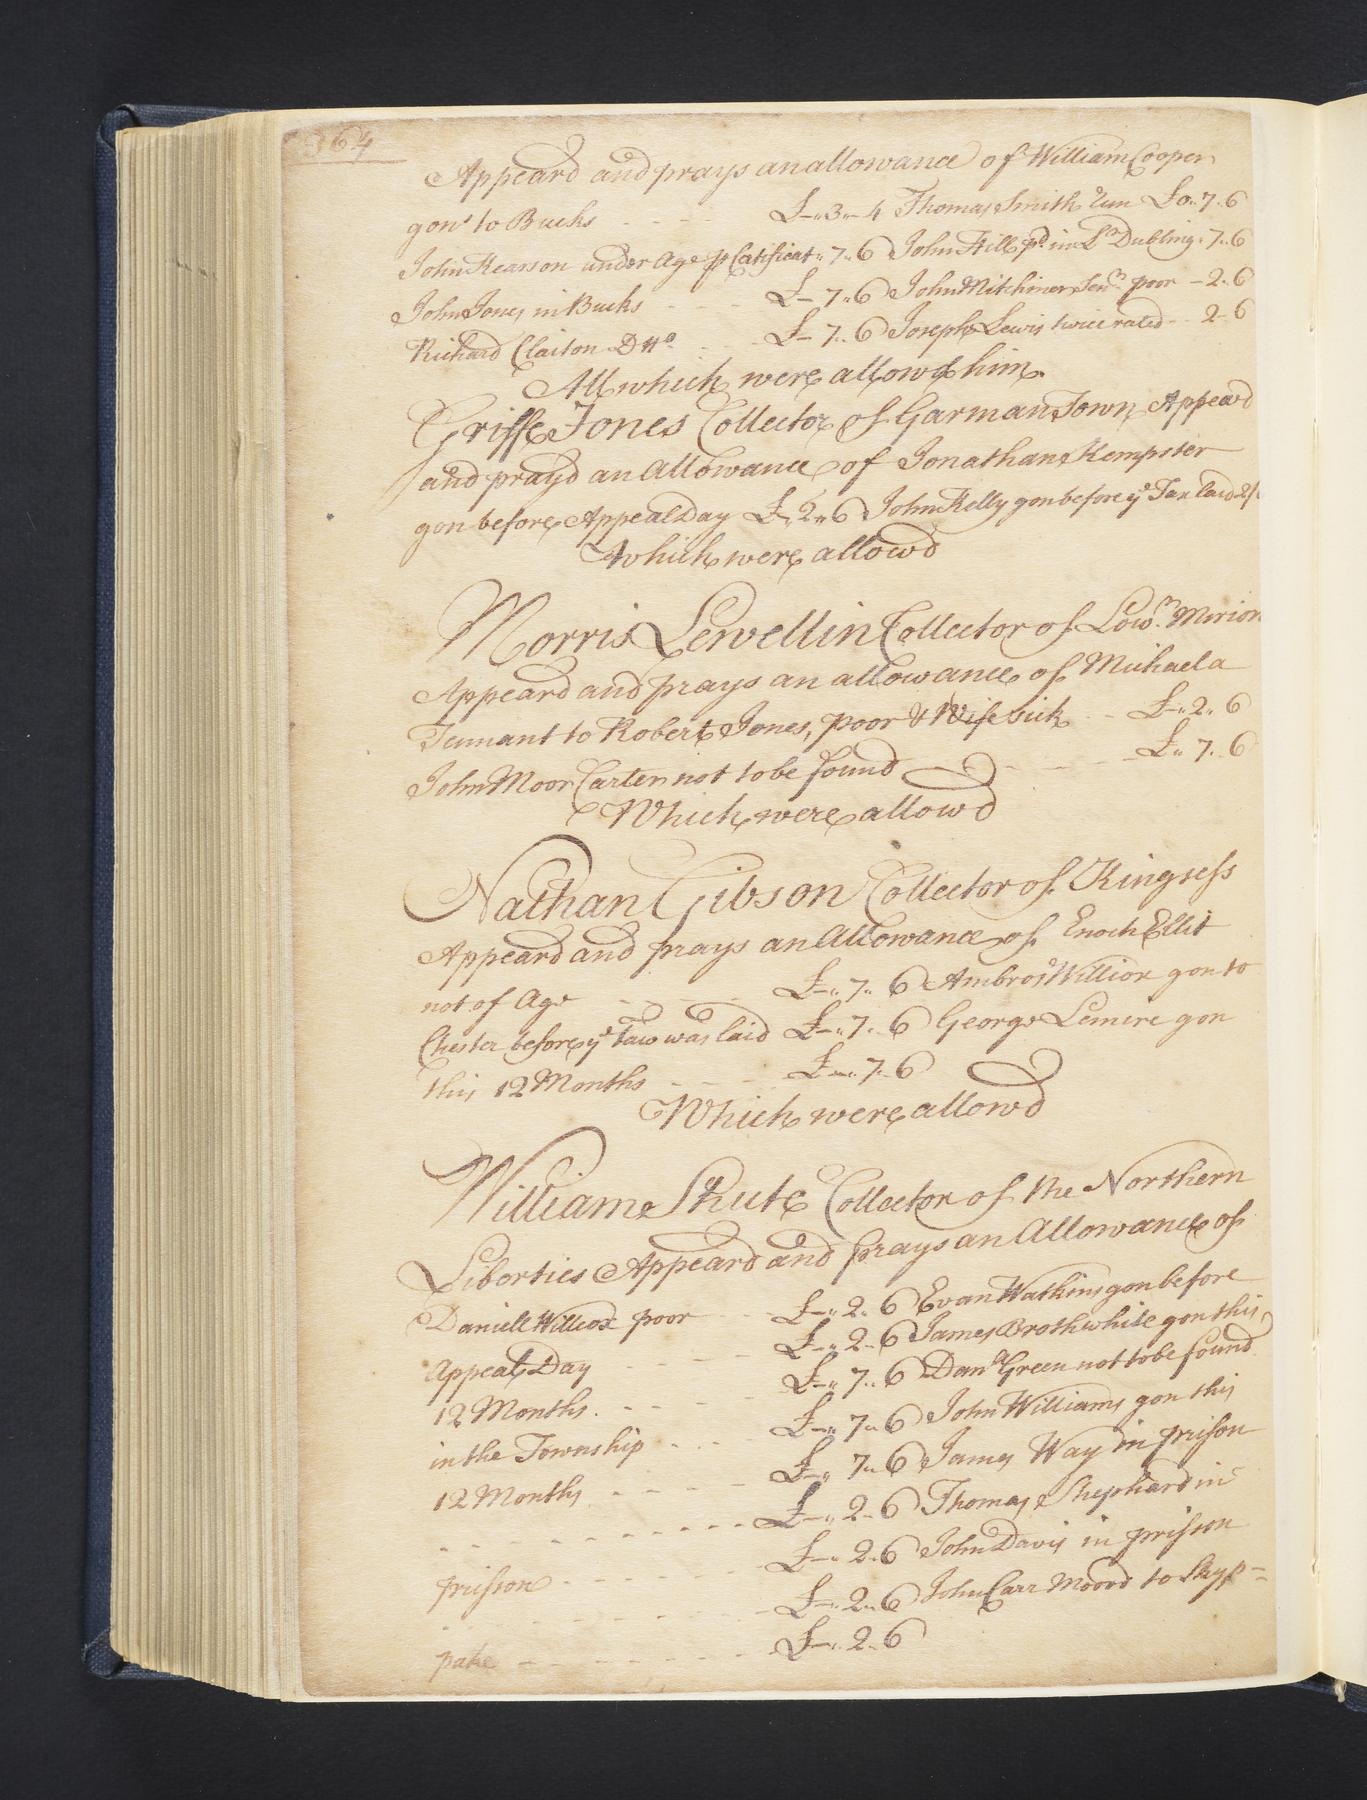 364
Appeard and prays an allowance of William Cooper
gon to Bucks - - - - £-"3"-4 Thomas Smith run £0"7"6
John Kearson under Age p Certificat "7"6 John Hill pd. in Dubling "7"6
John Jones in Bucks - - - £-7"6 John Mitchiner Senr. poor - 2"6
Richard Claiton Dtto. - - - £-7"6 Joseph Lewis twice rated - - 2"6
All which were allowd him
Griffe Jones Collector of Garman Town Appeard
and prayd an allowance of Jonathan Kempster
gon before Appeal Day £"2"6 John Kelly gon before ye Tax laid 2/
Which were allowd
Morris Lewellin Collector of Lowr. Merion
Appeard and prays an allowance of Michael a
Tennant to Robert Jones, poor & Wife sick - - £-"2"6
John Moor Carter not to be found - - - - - £"7"6
Which were allowd
Nathan Gibson Collector of Kingsess
Appeard and prays an Allowance of Enoch Ellit
not of Age - - - £-"7"6 Ambrose Willcox gon to
Chester before ye tax was laid £-"7"6 George Lemire gon
this 12 Months - - - - £-"7"6
Which were allowd
William Shute Collector of the Northern
Liberties Appeard and prays an Allowance of
Daniell Willcox poor - - £-"2"6 Evan Watkins gon before
Appeal Day - - - - £-"2-6 James Brothwhite gon this
12 Months - - - - £-"7"6 Danll Green not to be found
in the Township - - - £-"7"6 John Williams gon this
12 Months - - - - £-"7"6 James Way in prison
- - - - - - - - £-"2-6 Thomas Shephard in
prisson - - - - - - £-"2-6 John Davis in prisson
- - - - - - - - £-"2"6 John Carr Moovd to Shyp=
pake - - - - - - £-"2-6